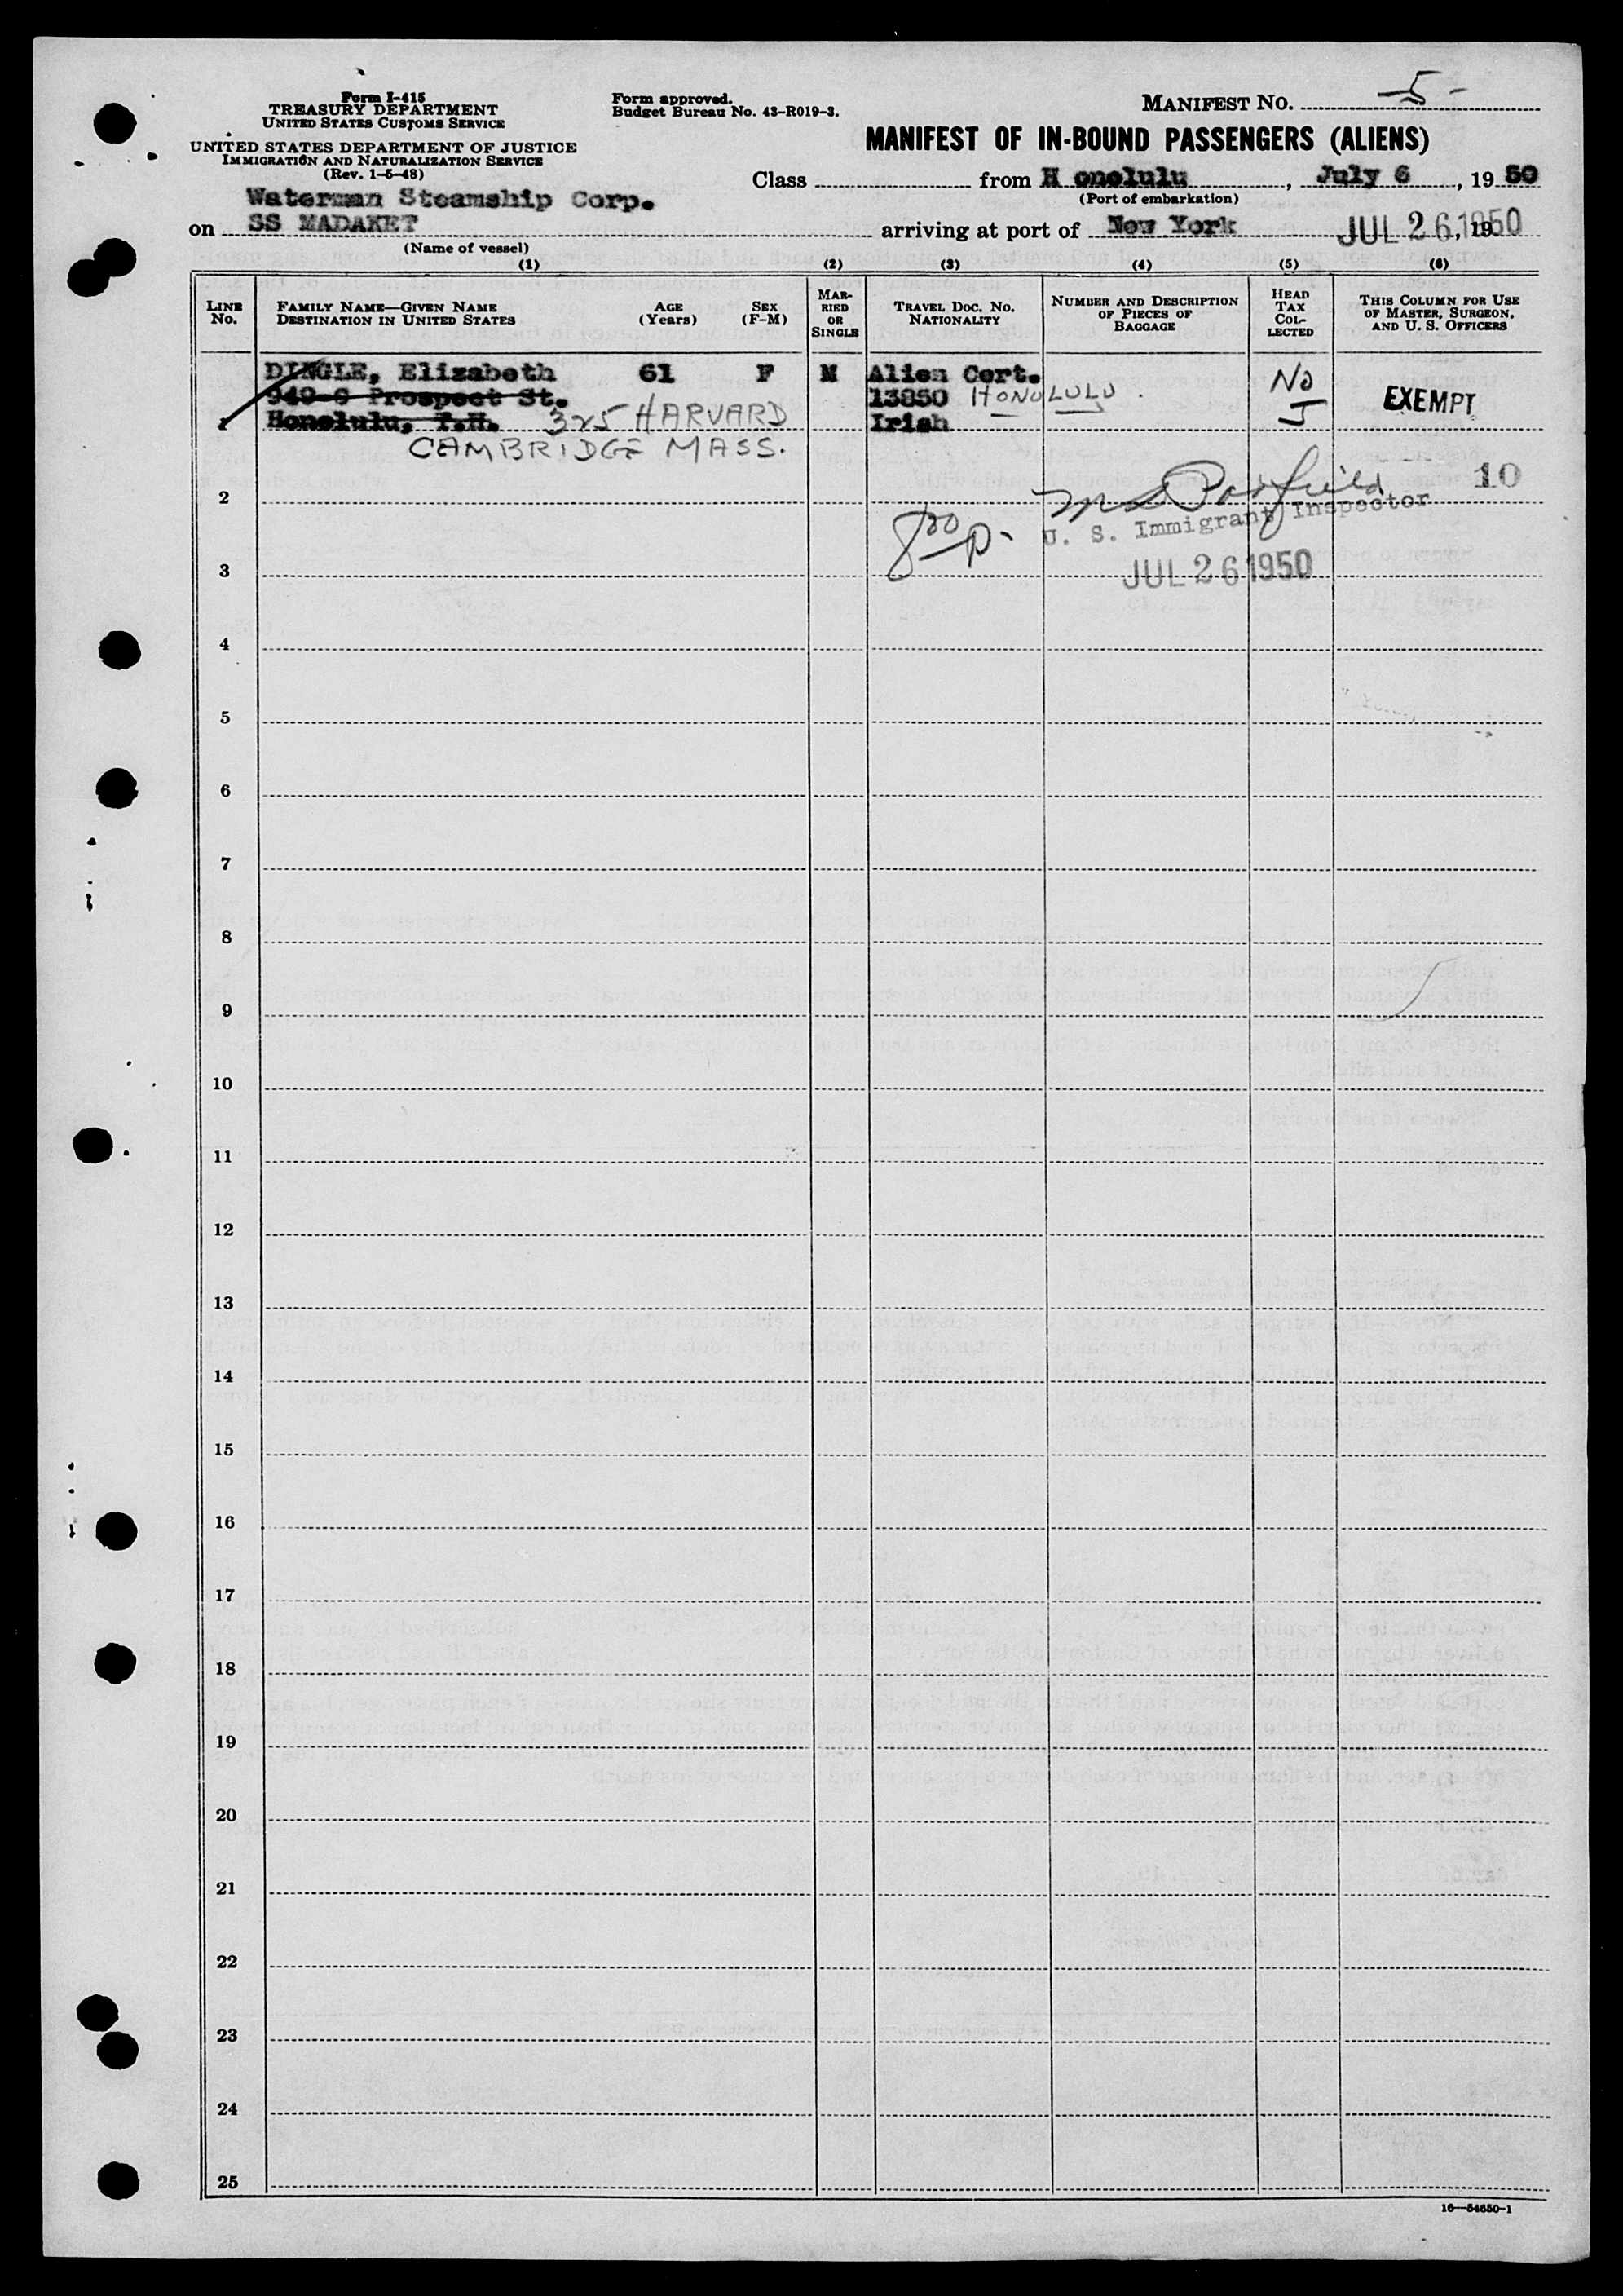 Form I-415
TREASURY DEPARTMENT
UNITED STATES CUSTOMS SERVICE
UNITED STATES DEPARTMENT OF JUSTICE
IMMIGRATION AND NATURALIZATION SERVICE
(Rev. 1-5-48)
Form approved.
Budget Bureau No. 43-R019-3.
MANIFEST NO. 5-
MANIFEST OF IN-BOUND PASSENGERS (ALIENS)
Class from H onolulu, July 6, 19 50
(Port of embarkation)
Waterman Steamship Corp.
on SS MADAKET arriving at port of New York JUL 26 1950, 19
(Name of vessel)
(1) (2) (3) (4) (5) (6)
LINE NO. FAMILY NAME—GIVEN NAME DESTINATION IN UNITED STATES AGE (Years) SEX (F-M) MARRIED OR SINGLE TRAVEL DOC. NO. NATIONALITY NUMBER AND DESCRIPTION OF PIECES OF BAGGAGE HEAD TAX COLLECTED THIS COLUMN FOR USE OF MASTER, SURGEON, AND U. S. OFFICERS
DINGLE, Elizabeth 61 F M Alien Cert. No
949-C Prospect St. 13850 HONOLULU EXEMPT
1 Honolulu, T.H. 325 HARVARD Irish
CAMBRIDGE MASS.
10
2
8 30 p.
U. S. Immigrant Inspector
3 JUL 26 1950
4
5
6
7
8
9
10
11
12
13
14
15
16
17
18
19
20
21
22
23
24
25
16—54650-1